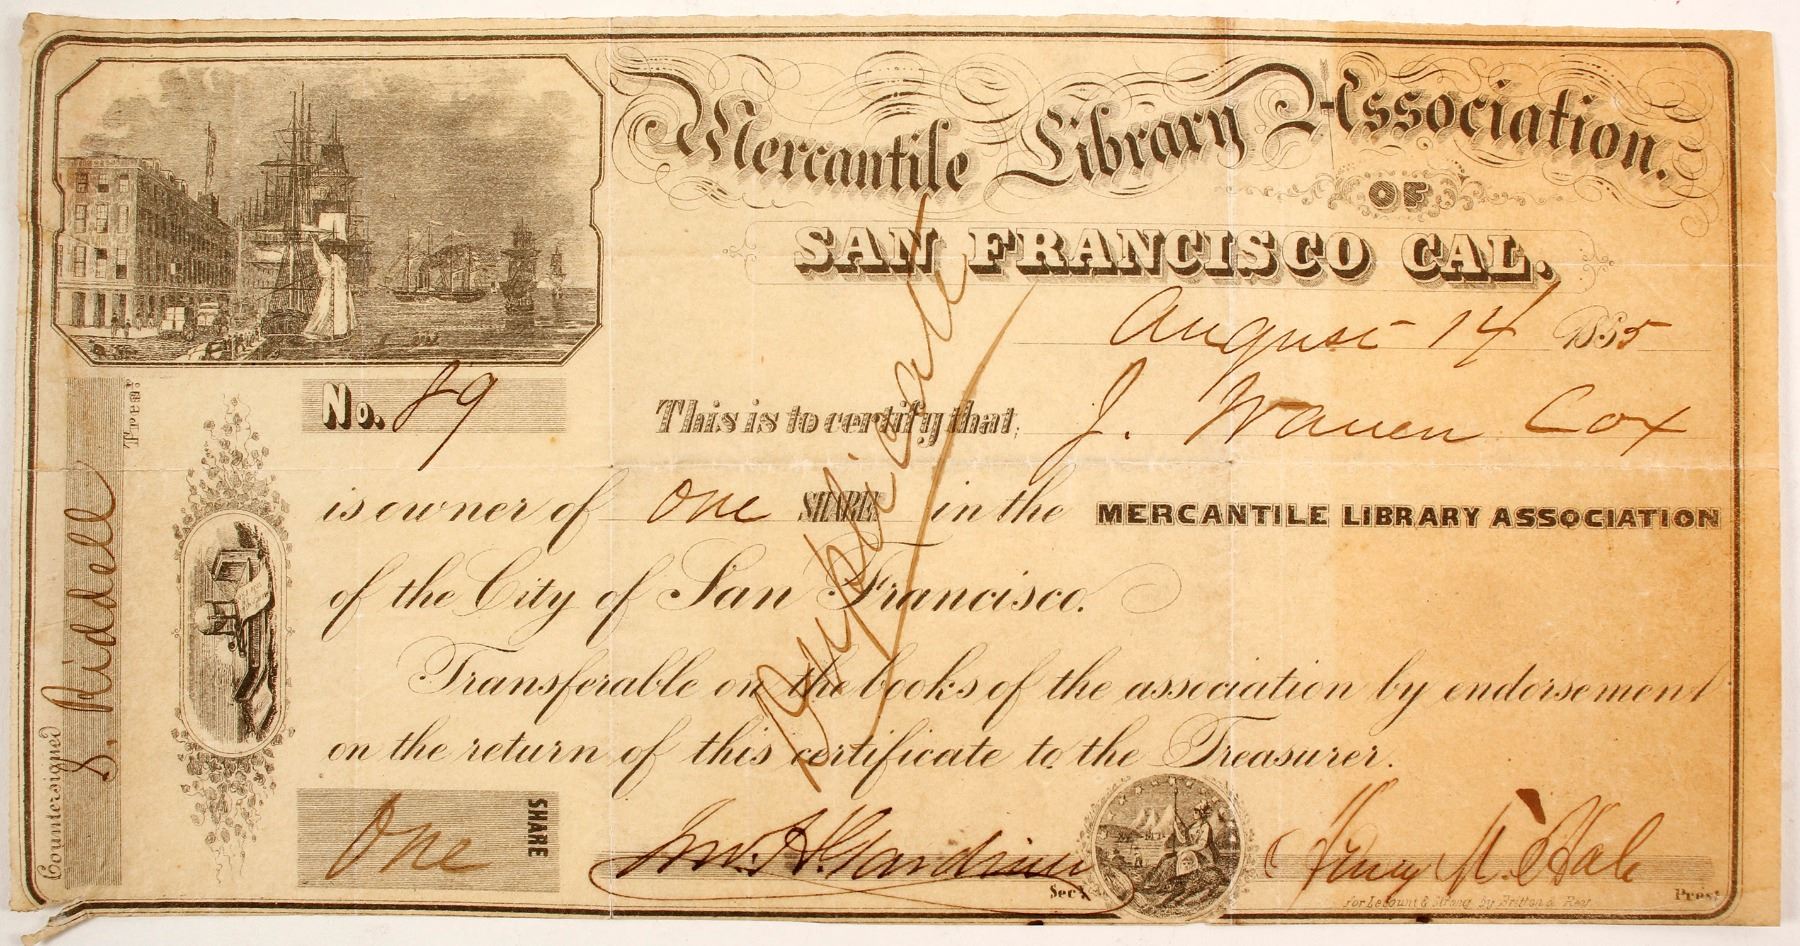 Mercantile Library Association.
OF
SAN FRANCISCO CAL.
August 14 1855
No. 89
This is to certify that, J. Warren Cox
is owner of One SHARE in the MERCANTILE LIBRARY ASSOCIATION
of the City of San Francisco.
Transferable on the books of the association by endorsement
on the return of this certificate to the Treasurer.
Duplicate
One SHARE
Jno. H. Gardiner Secy.
Henry M. Hale Prest.
for LeCount & Strong by Britton & Rey
Countersigned S. Riddell Treasr.